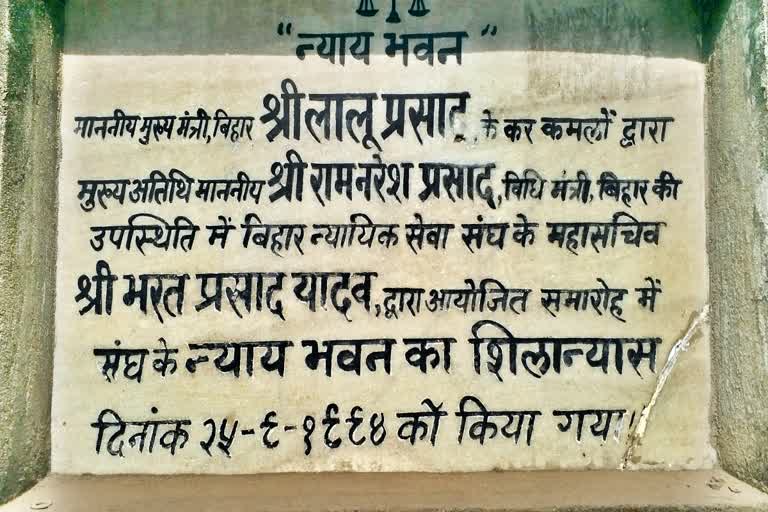 "न्याय भवन"
माननीय मुख्य मंत्री, बिहार श्री लालू प्रसाद के कर कमलों द्वारा
मुख्य अतिथि माननीय श्री रामनरेश प्रसाद, विधि मंत्री, बिहार की
उपस्थिति में बिहार न्यायिक सेवा संघ के महासचिव
श्री भरत प्रसाद यादव, द्वारा आयोजित समारोह में
संघ के न्याय भवन का शिलान्यास
दिनांक २५-९-१९९४ को किया गया।